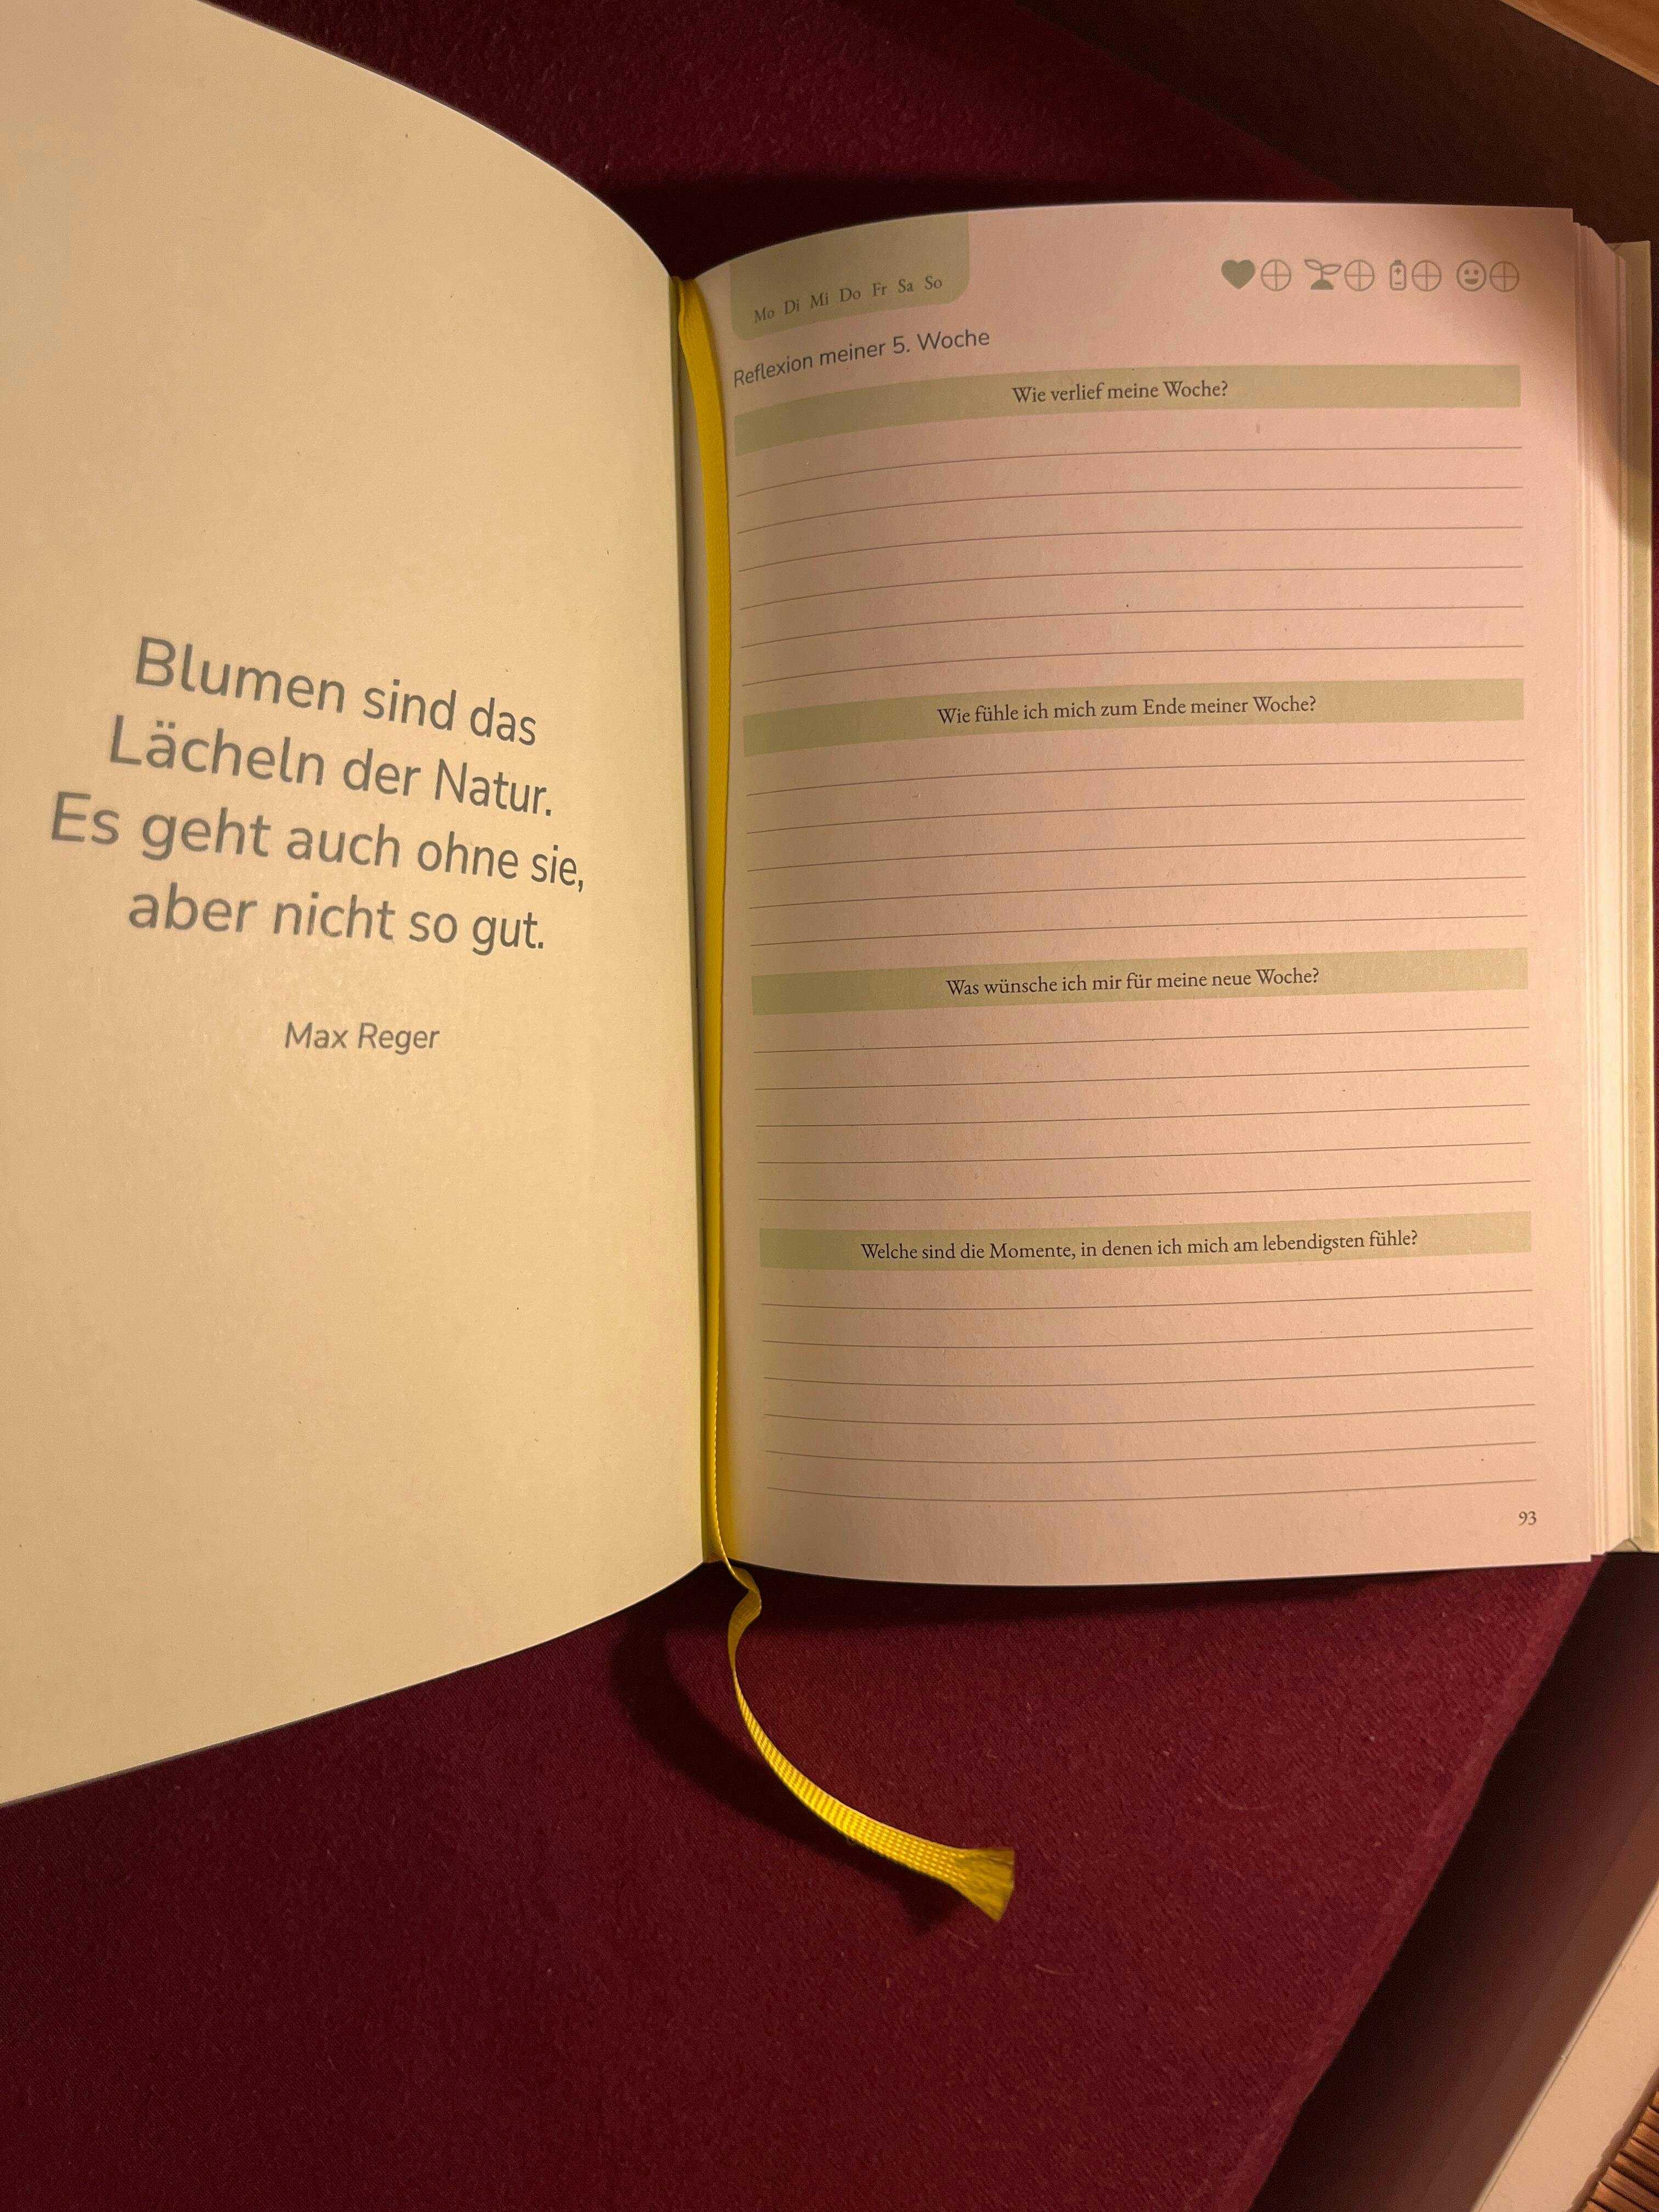 Blumen sind das
Lächeln der Natur.
Es geht auch ohne sie,
aber nicht so gut.
Max Reger
Mo Di Mi Do Fr Sa So
Reflexion meiner 5. Woche
Wie verlief meine Woche?
Wie fühle ich mich zum Ende meiner Woche?
Was wünsche ich mir für meine neue Woche?
Welche sind die Momente, in denen ich mich am lebendigsten fühle?
93